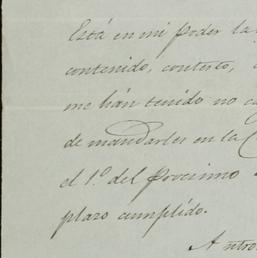 Está en mi poder la
contenido, contesto,
me han tenido no
de mandarles en la
el 1º. del Procsimo
plazo cumplido.